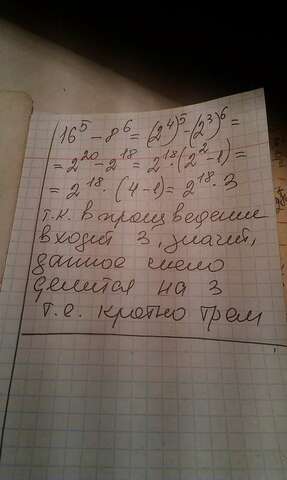 16⁵ - 8⁶ = (2⁴)⁵ - (2³)⁶ =
= 2²⁰ - 2¹⁸ = 2¹⁸ · (2² - 1) =
= 2¹⁸ · (4 - 1) = 2¹⁸ · 3
т.к. в произведение
входит 3, значит,
данное число
делится на 3
т.е. кратно трем